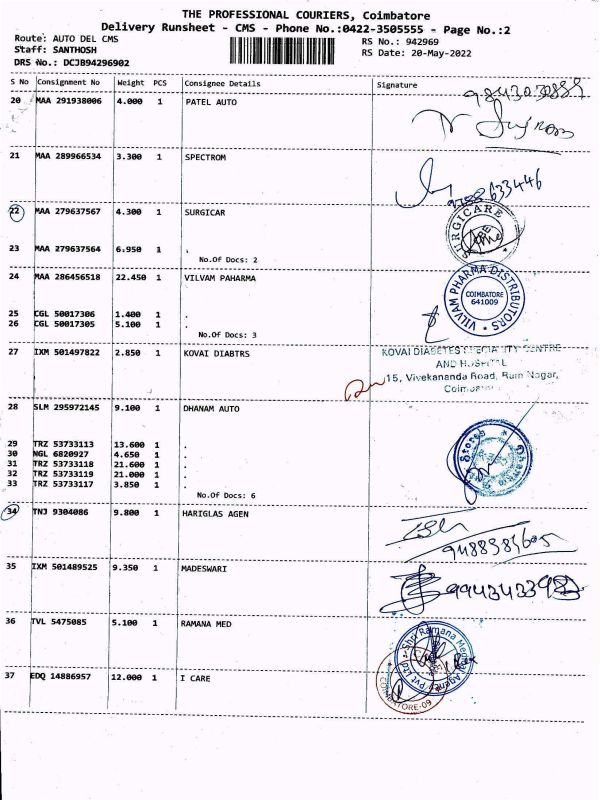 THE PROFESSIONAL COURIERS, Coimbatore
Delivery Runsheet - CMS - Phone No.:0422-3505555 - Page No.:2
Route: AUTO DEL CMS
Staff: SANTHOSH
DRS No.: DCJB94296902
RS No.: 942969
RS Date: 20-May-2022
S No Consignment No Weight PCS Consignee Details Signature
20 MAA 291938006 4.000 1 PATEL AUTO
21 MAA 289966534 3.300 1 SPECTROM
22 MAA 279637567 4.300 1 SURGICAR
SURGICARE
23 MAA 279637564 6.950 1 .
No.Of Docs: 2
24 MAA 286456518 22.450 1 VILVAM PAHARMA
VILVAM PHARMA DISTRIBUTORS
COIMBATORE
641009
25 CGL 50017306 1.400 1 .
26 CGL 50017305 5.100 1 .
No.Of Docs: 3
27 IXM 501497822 2.850 1 KOVAI DIABTRS
KOVAI DIABETES SPECIALITY CENTRE
AND HOSPITAL
15, Vivekananda Road, Ram Nagar,
28 SLM 295972145 9.100 1 DHANAM AUTO
29 TRZ 53733113 13.600 1 .
30 NGL 6820927 4.650 1 .
31 TRZ 53733118 21.600 1 .
32 TRZ 53733119 21.000 1 .
33 TRZ 53733117 3.850 1 .
No.Of Docs: 6
34 TNJ 9304086 9.800 1 HARIGLAS AGEN
35 IXM 501489525 9.350 1 MADESWARI
36 TVL 5475085 5.100 1 RAMANA MED
Shri Ramana Medical Agency Pvt Ltd
37 EDQ 14886957 12.000 1 I CARE
COIMBATORE-09